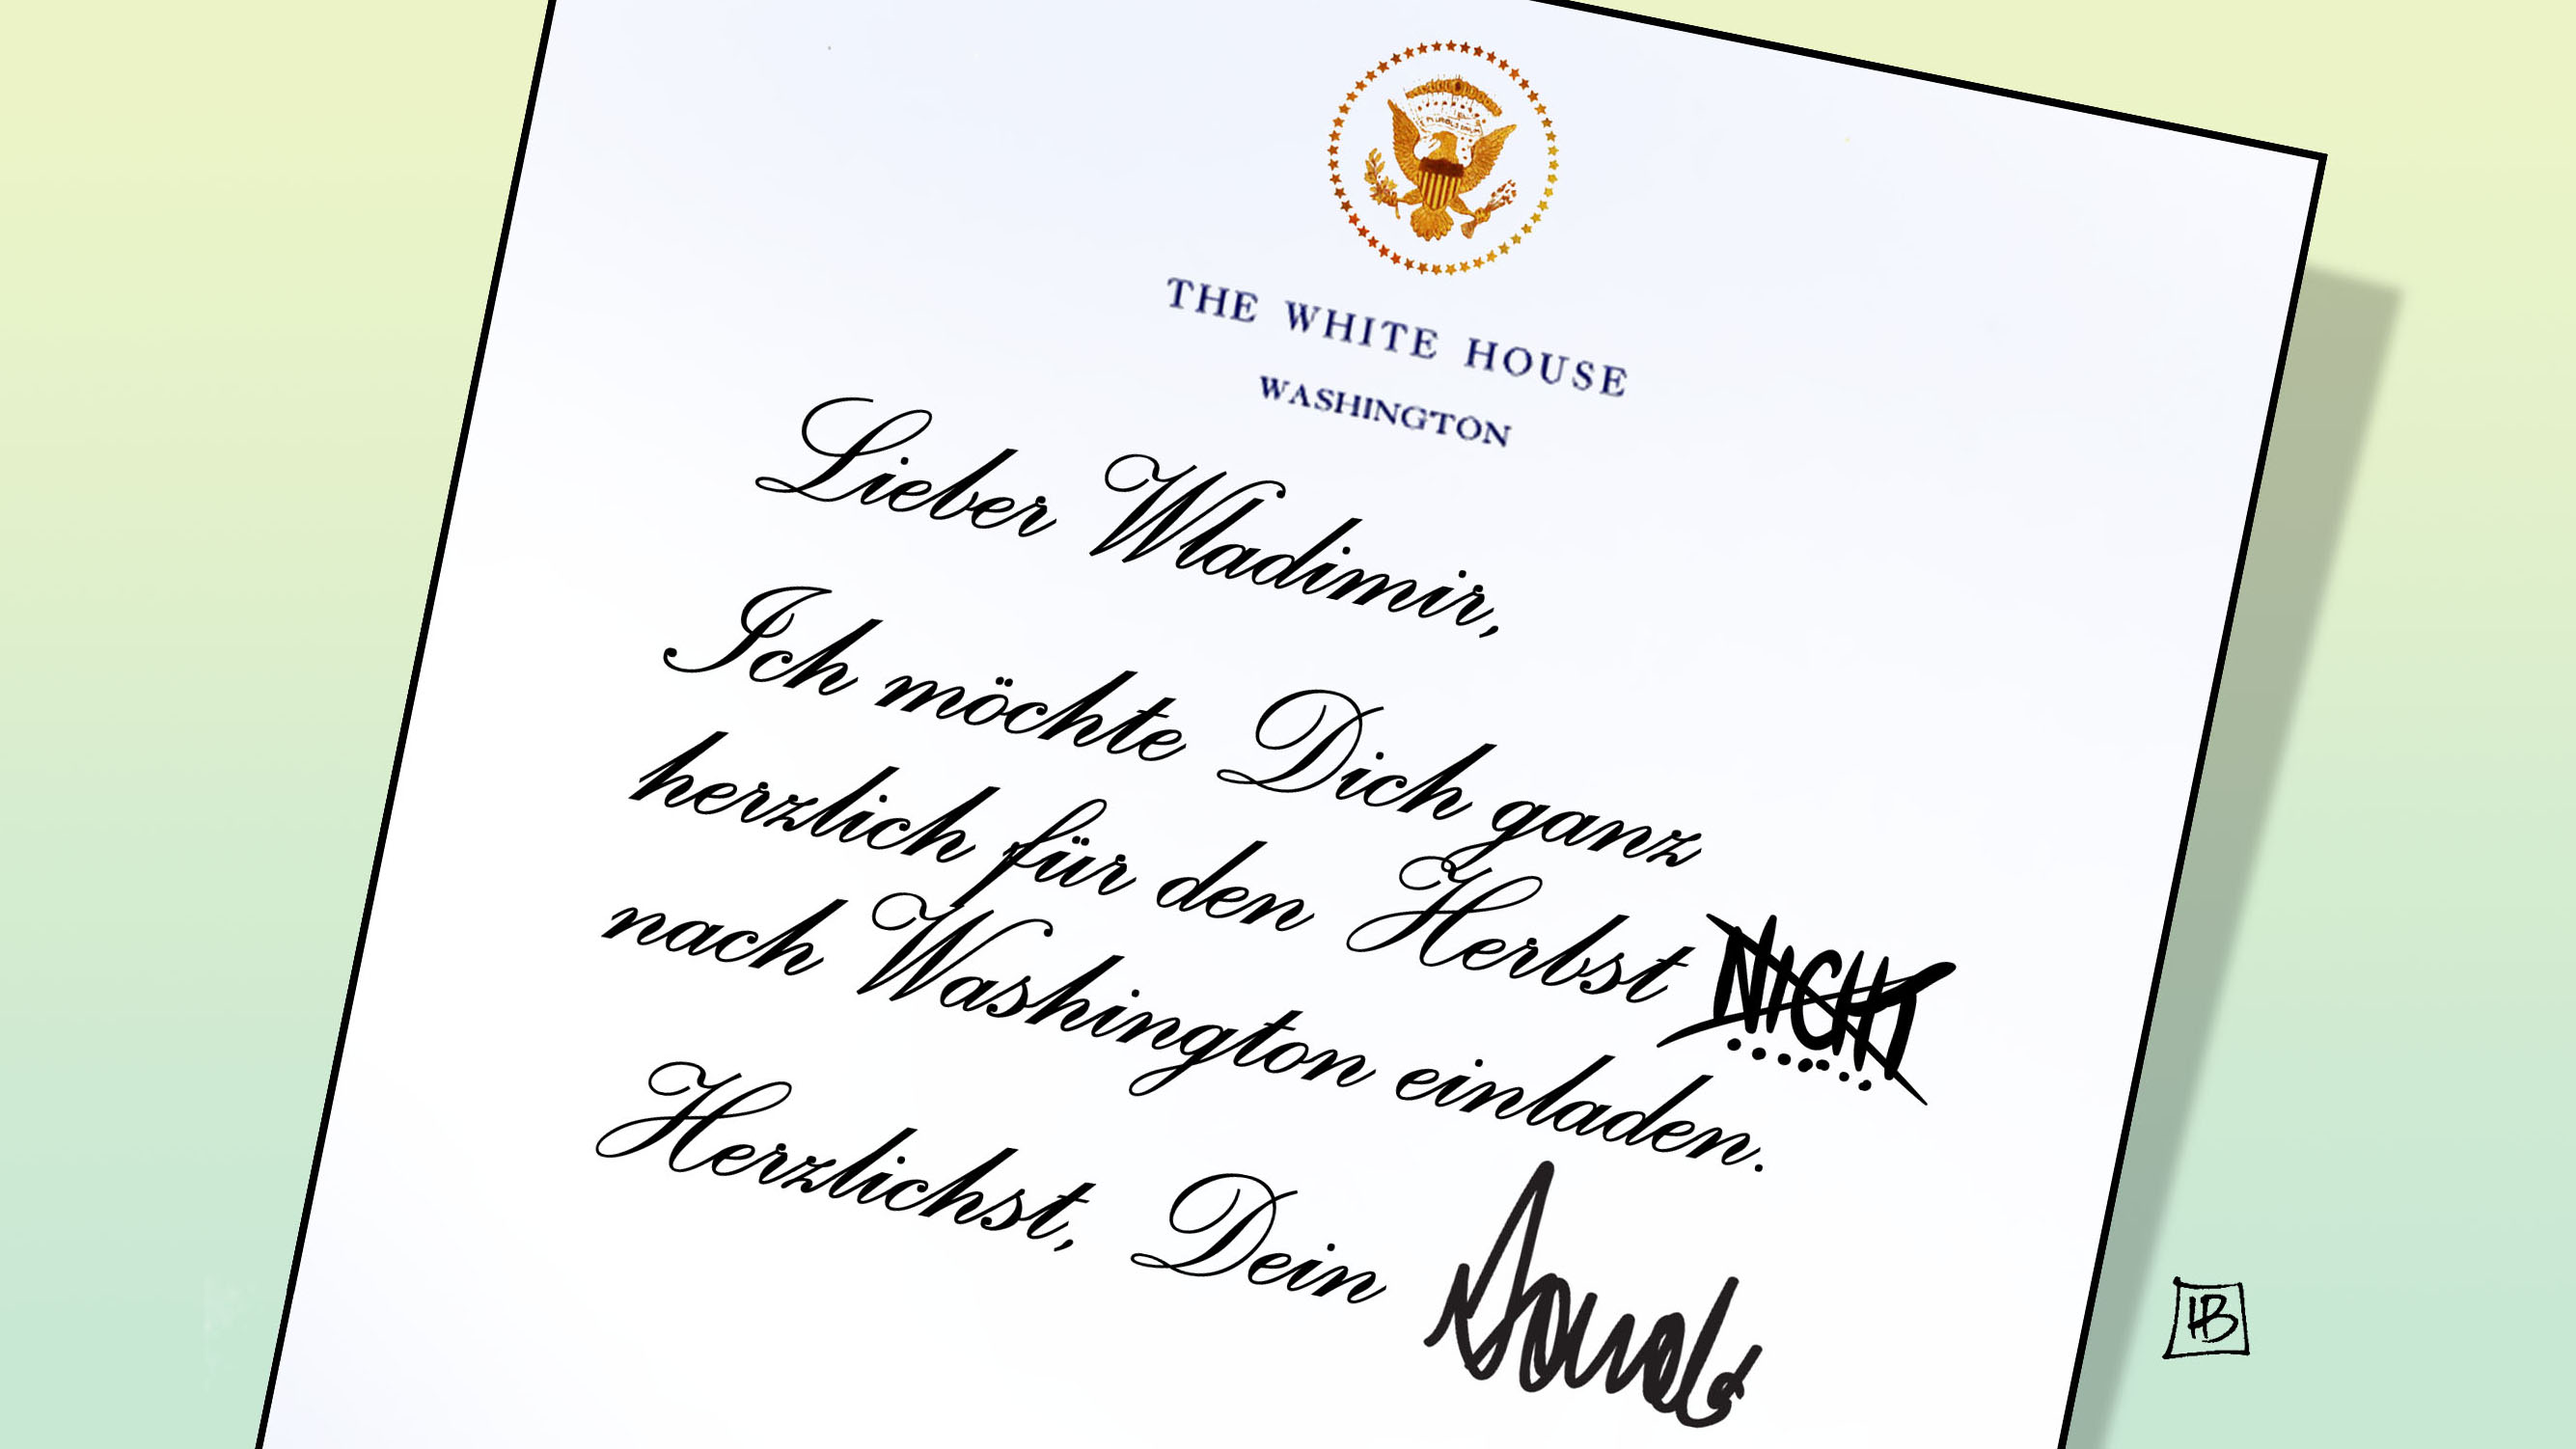 THE WHITE HOUSE
WASHINGTON
Lieber Wladimir,
Ich möchte Dich ganz
herzlich für den Herbst NICHT
nach Washington einladen.
Herzlichst, Dein Donald
HB